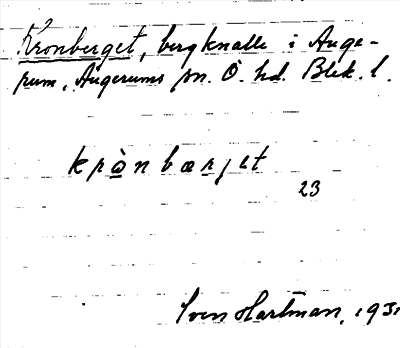 Kronberget, bergknalle i Auge-
rum, Augerums sn. Ö. hd. Blek. l.
krò̱nbæṟjet
23
Sven Hartman, 1931